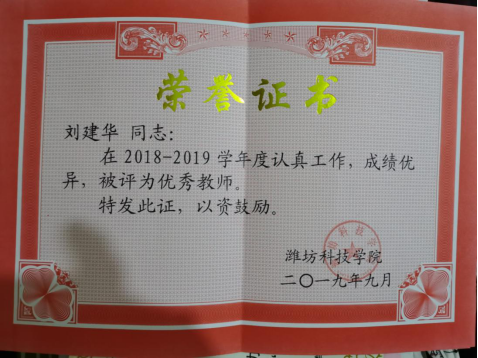 荣誉证书
刘建华 同志：
在2018-2019学年度认真工作，成绩优
异，被评为优秀教师。
特发此证，以资鼓励。
潍坊科技学院
二〇一九年九月